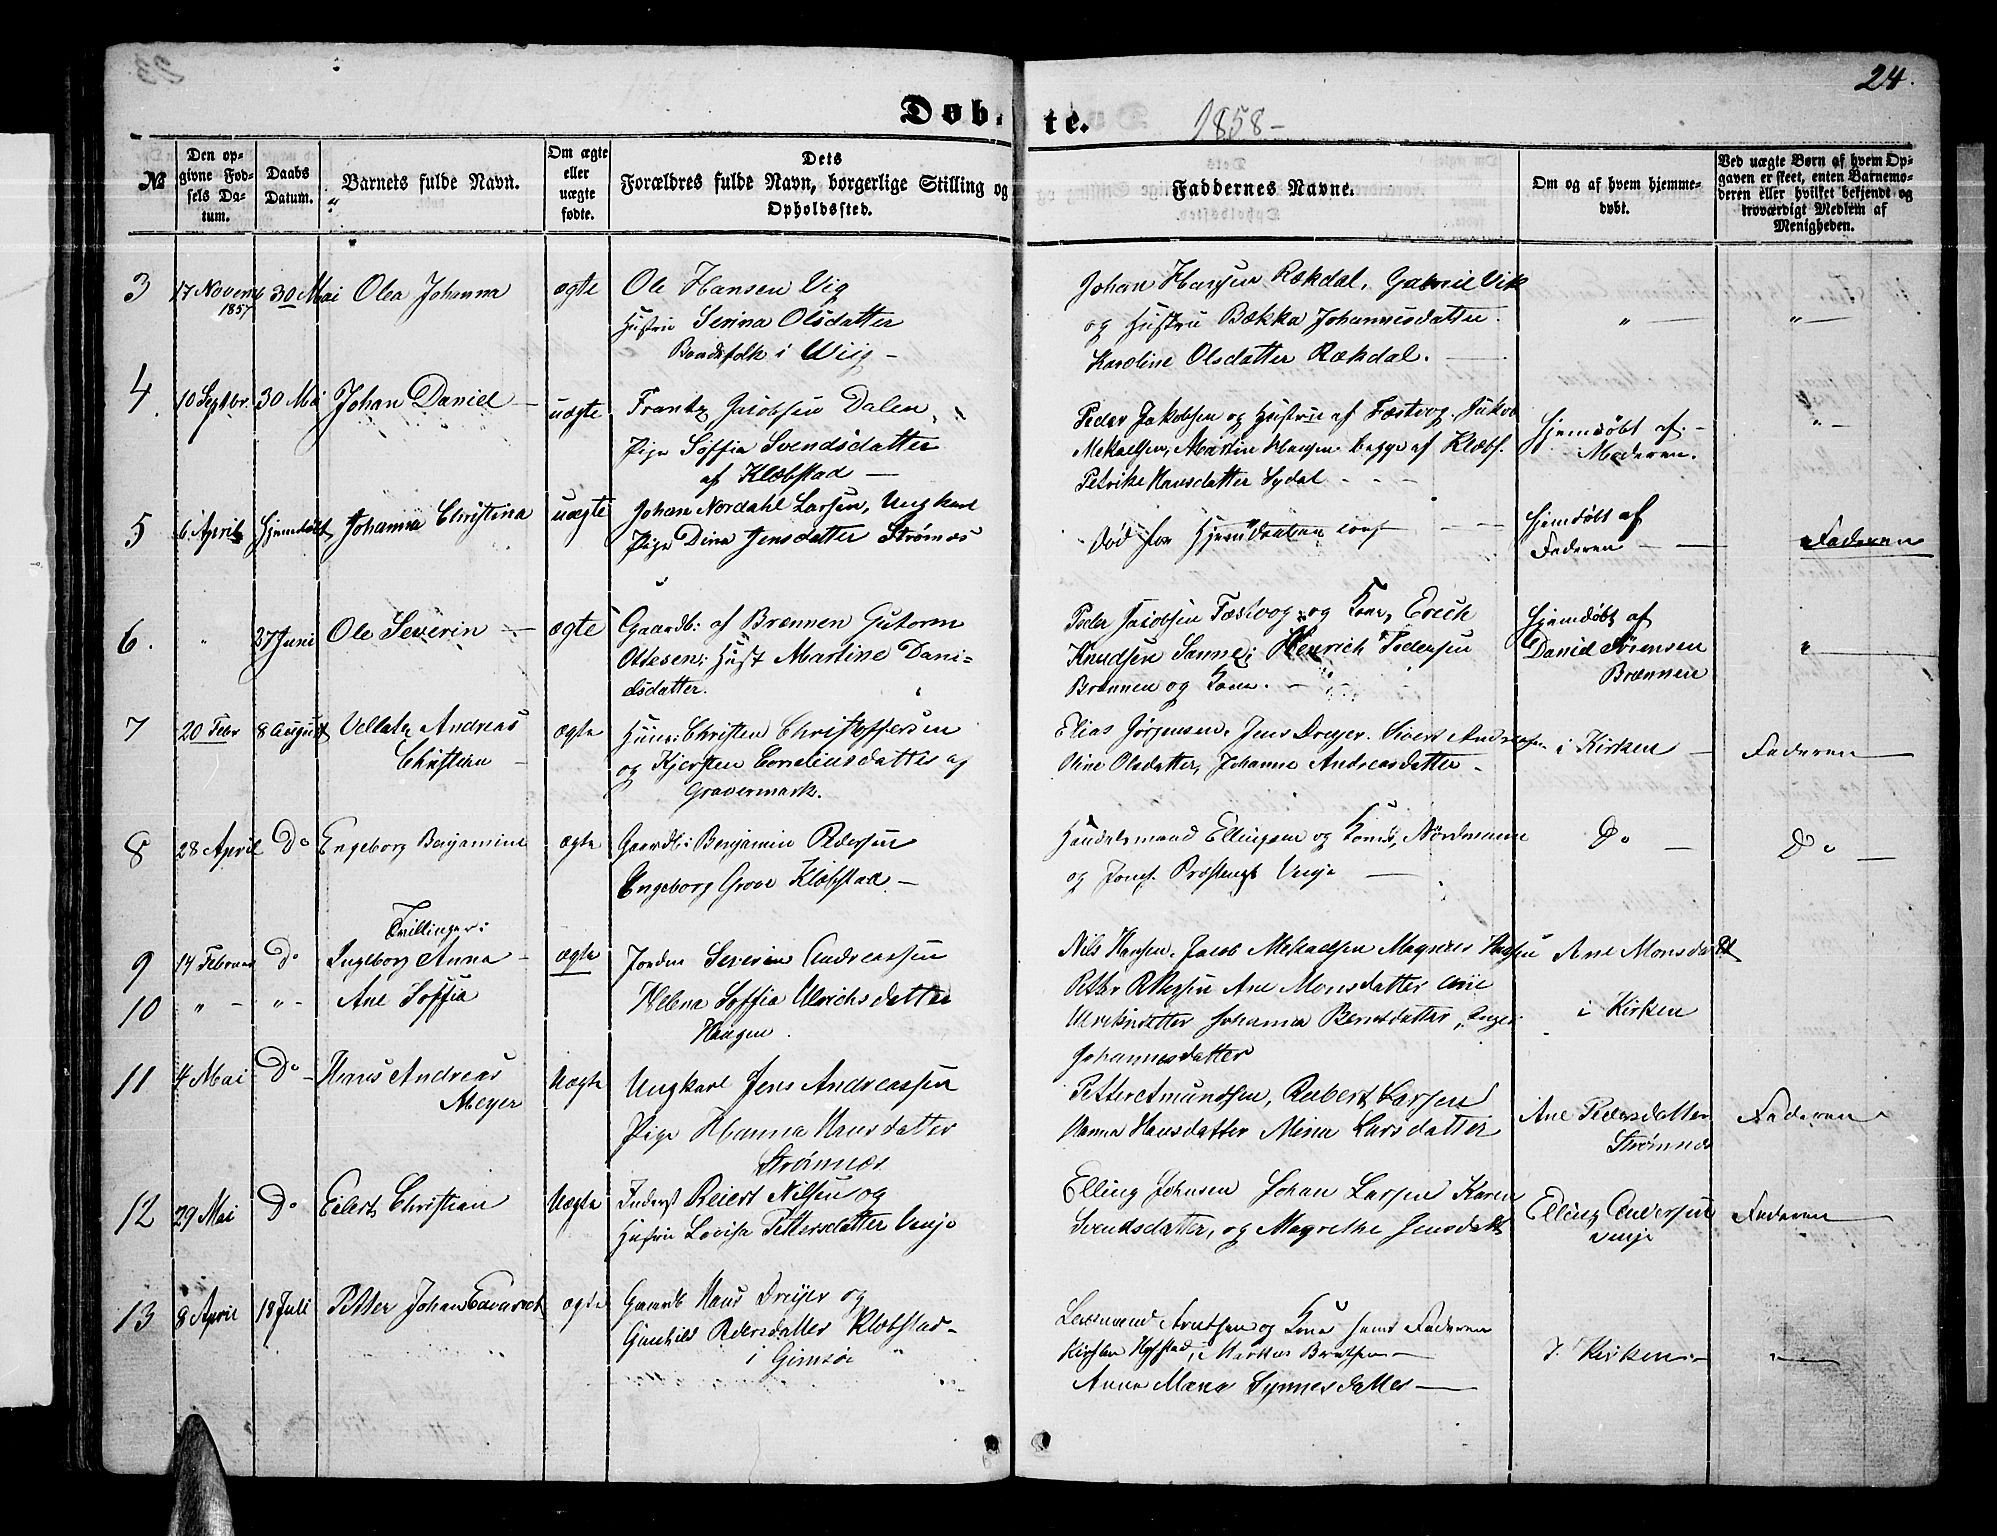 24.
Døbte.
1858-
№
Den opgivne Fødsels Datum.
Daabs Datum.
Barnets fulde Navn.
Om ægte eller uægte fødte.
Dets
Forældres fulde Navn, borgerlige Stilling og
Opholdssted.
Faddernes Navne.
Om og af hvem hjemmedøbt.
Ved uægte Børn af hvem Opgaven er skeet, enten Barnemoderen eller hvilket bekjendt og troværdigt Medlem af Menigheden.
3 17 Novemb 1857 30 Mai Olea Johanna ægte Ole Hansen Vig
Hustru Serina Olsdatter
Bondefolk i Wiig -
Johan Hansen Rækdal, Gabriel Vik
og Hustru Bækka Johannesdatter
Karoline Olsdatter Rækdal.
4. 10 Septbr. 30 Mai Johan Daniel uægte Frantz Jacobsen Dalen
Pige Soffia Svendsdatter
af Klæbstad
Peder Jakobsen og Hustrue af Fæstvog. Jakob
Mekaelsen, Martin Hansen begge af Klæbs.
Petrike Hansdatter Sydal
Hjemdöbt af
Moderen.
5 6 April Hjemdøbt Johanna Christina uægte Johan Nordahl Larsen, Ungkarl
Pige Dina Jensdatter Strømnæs
død før
Hjemdöbt af
Faderen
Faderen
6. " 27 Juni Ole Severin ægte Gaardb: af Brennen Gutorm
Ottesen: Hust Martine Danielsdatter.
Peder Jacobsen Fæstvog og Kone, Erich
Knudsen Sanne; Henrich Pedersen
Brænnen og Kone.
Hjemdöbt af
David Sørensen
Brænnen
7 20 Febr 8 August Andreas
Christian
ægte Christen Christoffersen
og Kjersten Corneliusdatter og
Gravermark.
Elias Jørgensen, Jens Dreyer, Sivert Andreasen
Oline Olsdatter, Johanne Andreasdatter
i Kirken
Faderen
8 28 April Do Engeborg Benjamine ægte Gaardb: Benjamin Pedersen
Engeborg Grove Klæbstad
Handelsmand Ellingsen og Kone, Nordmann
og
Do
Do
Tvillinger:
9 14 Februar Do Ingeborg Anna ægte Severin Andreassen
10 " " Ane Soffia Helena Soffia Ulrichsdatter
Haugen.
Nils Hansen, Jacob Mekaelsen Magnus Hansen
Petter Ane Monsdatter
Ulriksdatter Johanna Berntsdatter,
Johannesdatter
Ane Monsdatt
i Kirken
11 4 Mai Do Hans Andreas
Meyer
Uægte Ungkarl Jens Andreassen
Pige Hanna Hansdatter
Strömnæs
Petter Amundsen, Robert Larsen
Hanna Hansdatter Mina Larsdatter
Ane Pedersdatter
Strømnæs
Faderen
12 29 Mai Do Eilert Christian Uægte Inderst Reiert Nilsen og
Hustru Lovisa Pettersdatter Venje
Elling Johnsen Johan Larsen Karen
Svendsdatter, og Magrethe Jensdatt
Elling Andersen
Venje
Faderen
13 8 April 18 Juli Petter Johan Edevardt ægte Gaardb Hans Dreyer og
Gunhild Pedersdatter Klæbstad
i Gimsöe
Lensmand og Kone samt Faderen
Kirsten Hofstad, Markus
Anna Maria
I Kirken